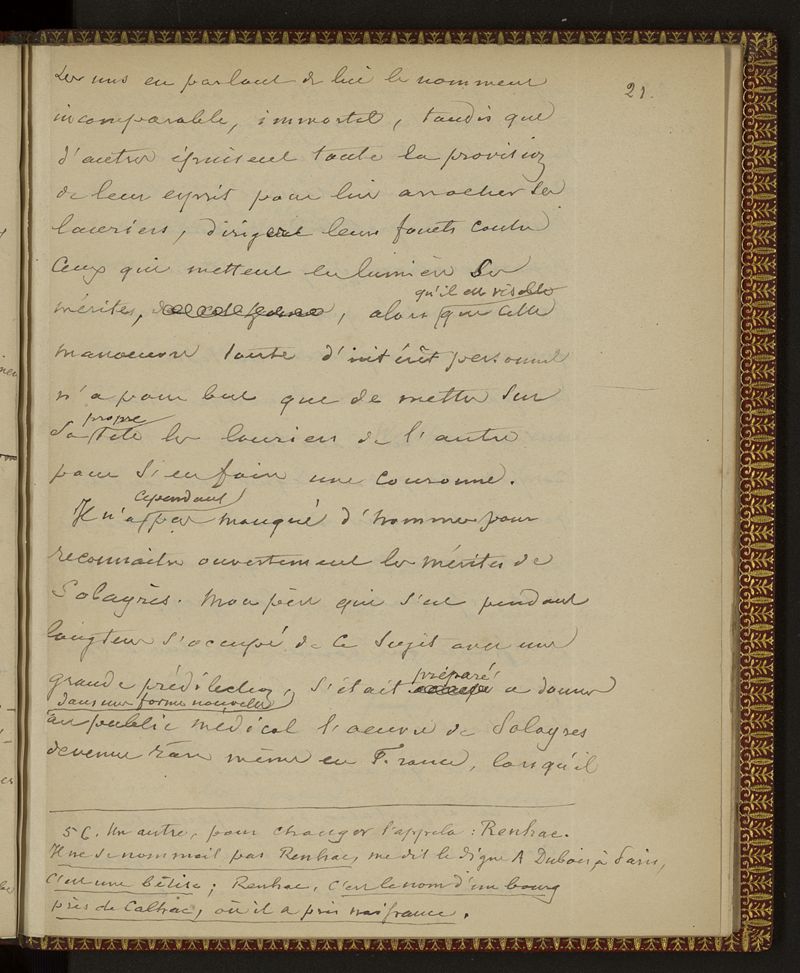 21.
Les uns en parlant de lui le nomment
incomparable, immortel, tandis que
d'autres épuisent toute la provision
de leur esprit pour lui arracher ses
lauriers, dirigent leurs fouets contre
ceux qui mettent en lumière ses
qu'il est visible
mérites, alors que cette
manoeuvre toute d'intérêt personnel
n'a pour but que de mettre sur
propre
sa tête les lauriers de l'autre
pour s'en faire une couronne.
cependant
Il n'a pas manqué d'hommes pour
reconnaitre ouvertement les mérites de
Solayrès. Mon père qui s'est pendant
longtems s'occupé de ce sujet avec une
préparé
grande prédilection, s'était à donner
dans une forme nouvelle
au public médical l'oeuvre de Solayres
devenue rare même en France, lorsqu'il
56. Un autre, pour changer l'appela : Renhac.
Il ne se nommait pas Renhac, me dit le digne A Dubois, à Paris,
c'est une bêtise ; Renhac, c'est le nom d'un bourg
près de Calhac, où il a pris naissance.